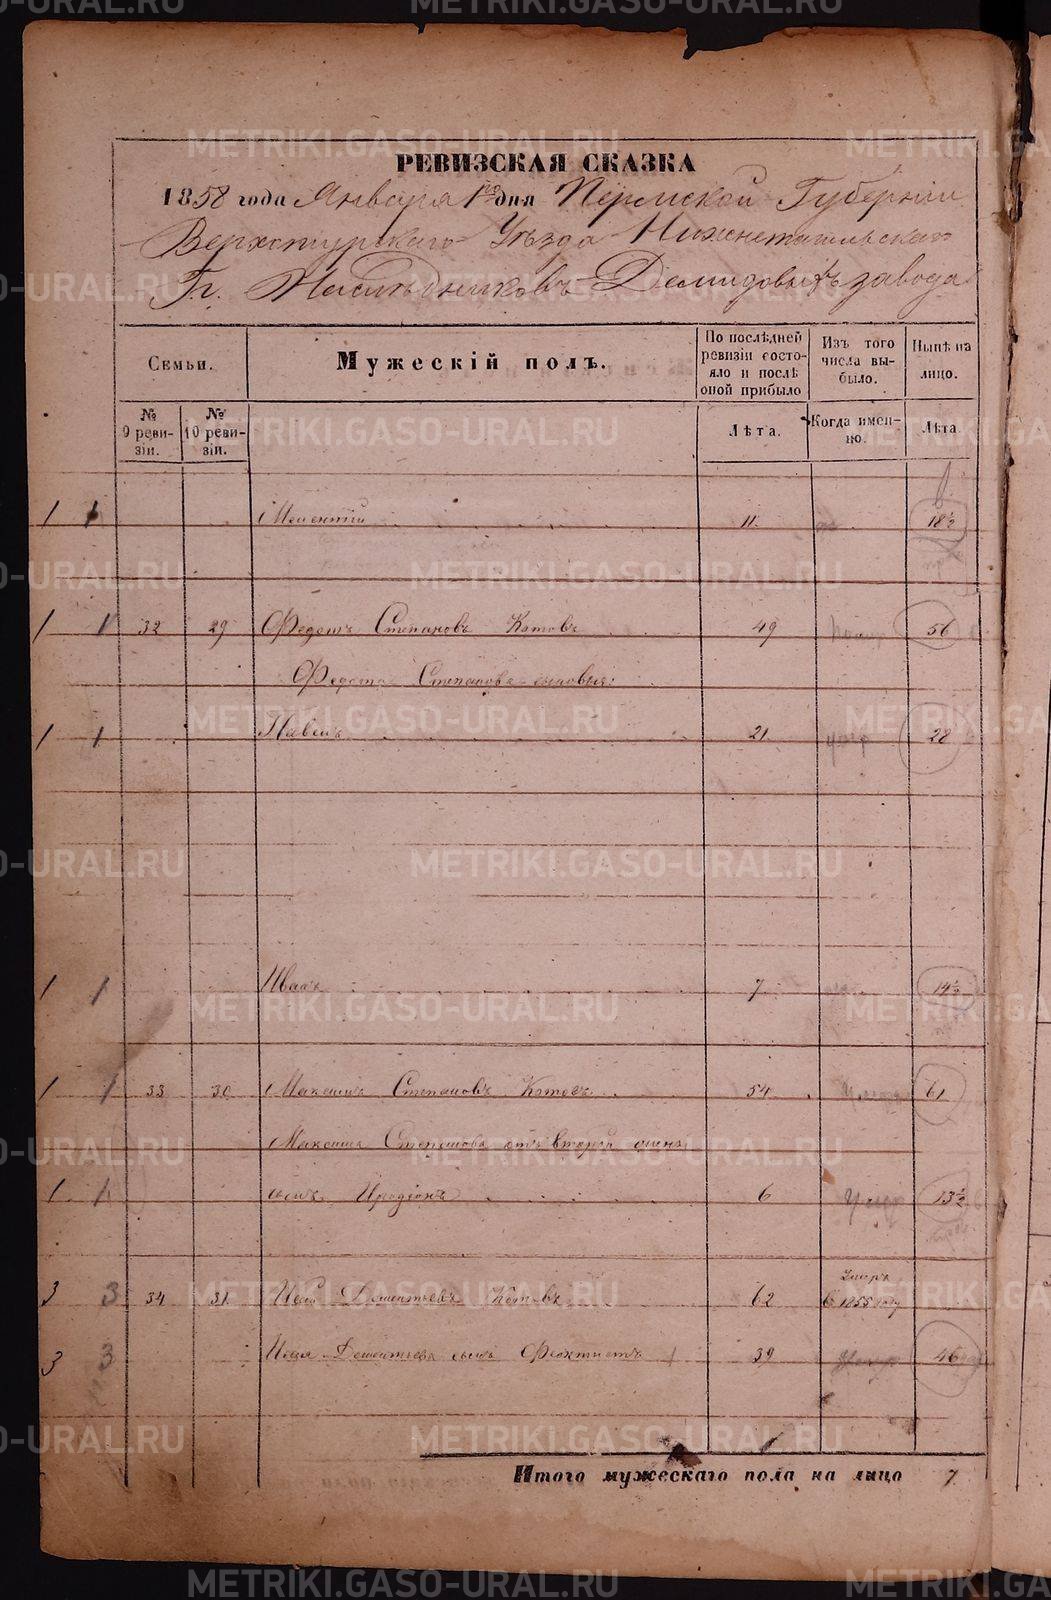 METRIKI.GASO-URAL.RU
РЕВИЗСКАЯ СКАЗКА
1858 года Января 1го дня Пермской Губерніи
Верхотурскаго Уѣзда Нижнетагильскаго
Гг. Наслѣдниковъ Демидовыхъ завода
Семьи.
Мужескій полъ.
По послѣдней ревизіи состояло и послѣ оной прибыло
Изъ того числа выбыло.
Нынѣ на лицо.
№ 9 ревизіи.
№ 10 ревизіи.
Лѣта.
Когда именно.
Лѣта.
1 1 Мелентій 11 18½
1 1 32 29 Федотъ Степановъ Котовъ 49 56
Федота Степанова сыновья:
1 1 Павелъ 21 28
1 1 Иванъ 7 14½
1 1 33 30 Максимъ Степановъ Котовъ 54 61
Максима Степанова отъ второй жены
1 1 сынъ Иродіонъ 6 13½
3 3 34 31 Дементьевъ Котовъ 62 Умеръ въ 1855 году
3 3 Дементьева сынъ Феоктистъ 39 46
Итого мужескаго пола на лицо 7